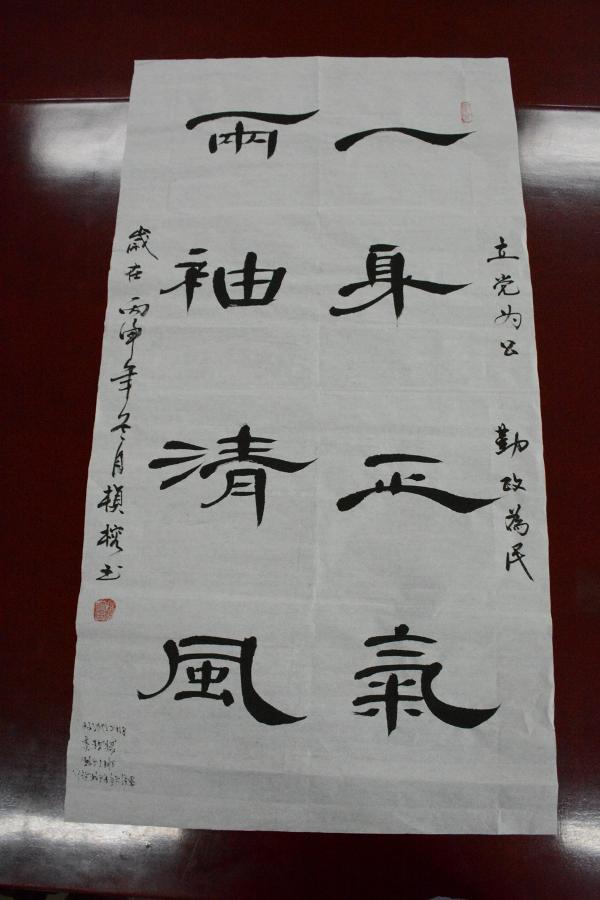 立党为公 勤政為民
一身正氣
兩袖清風
歲在丙申年冬月楨榕书